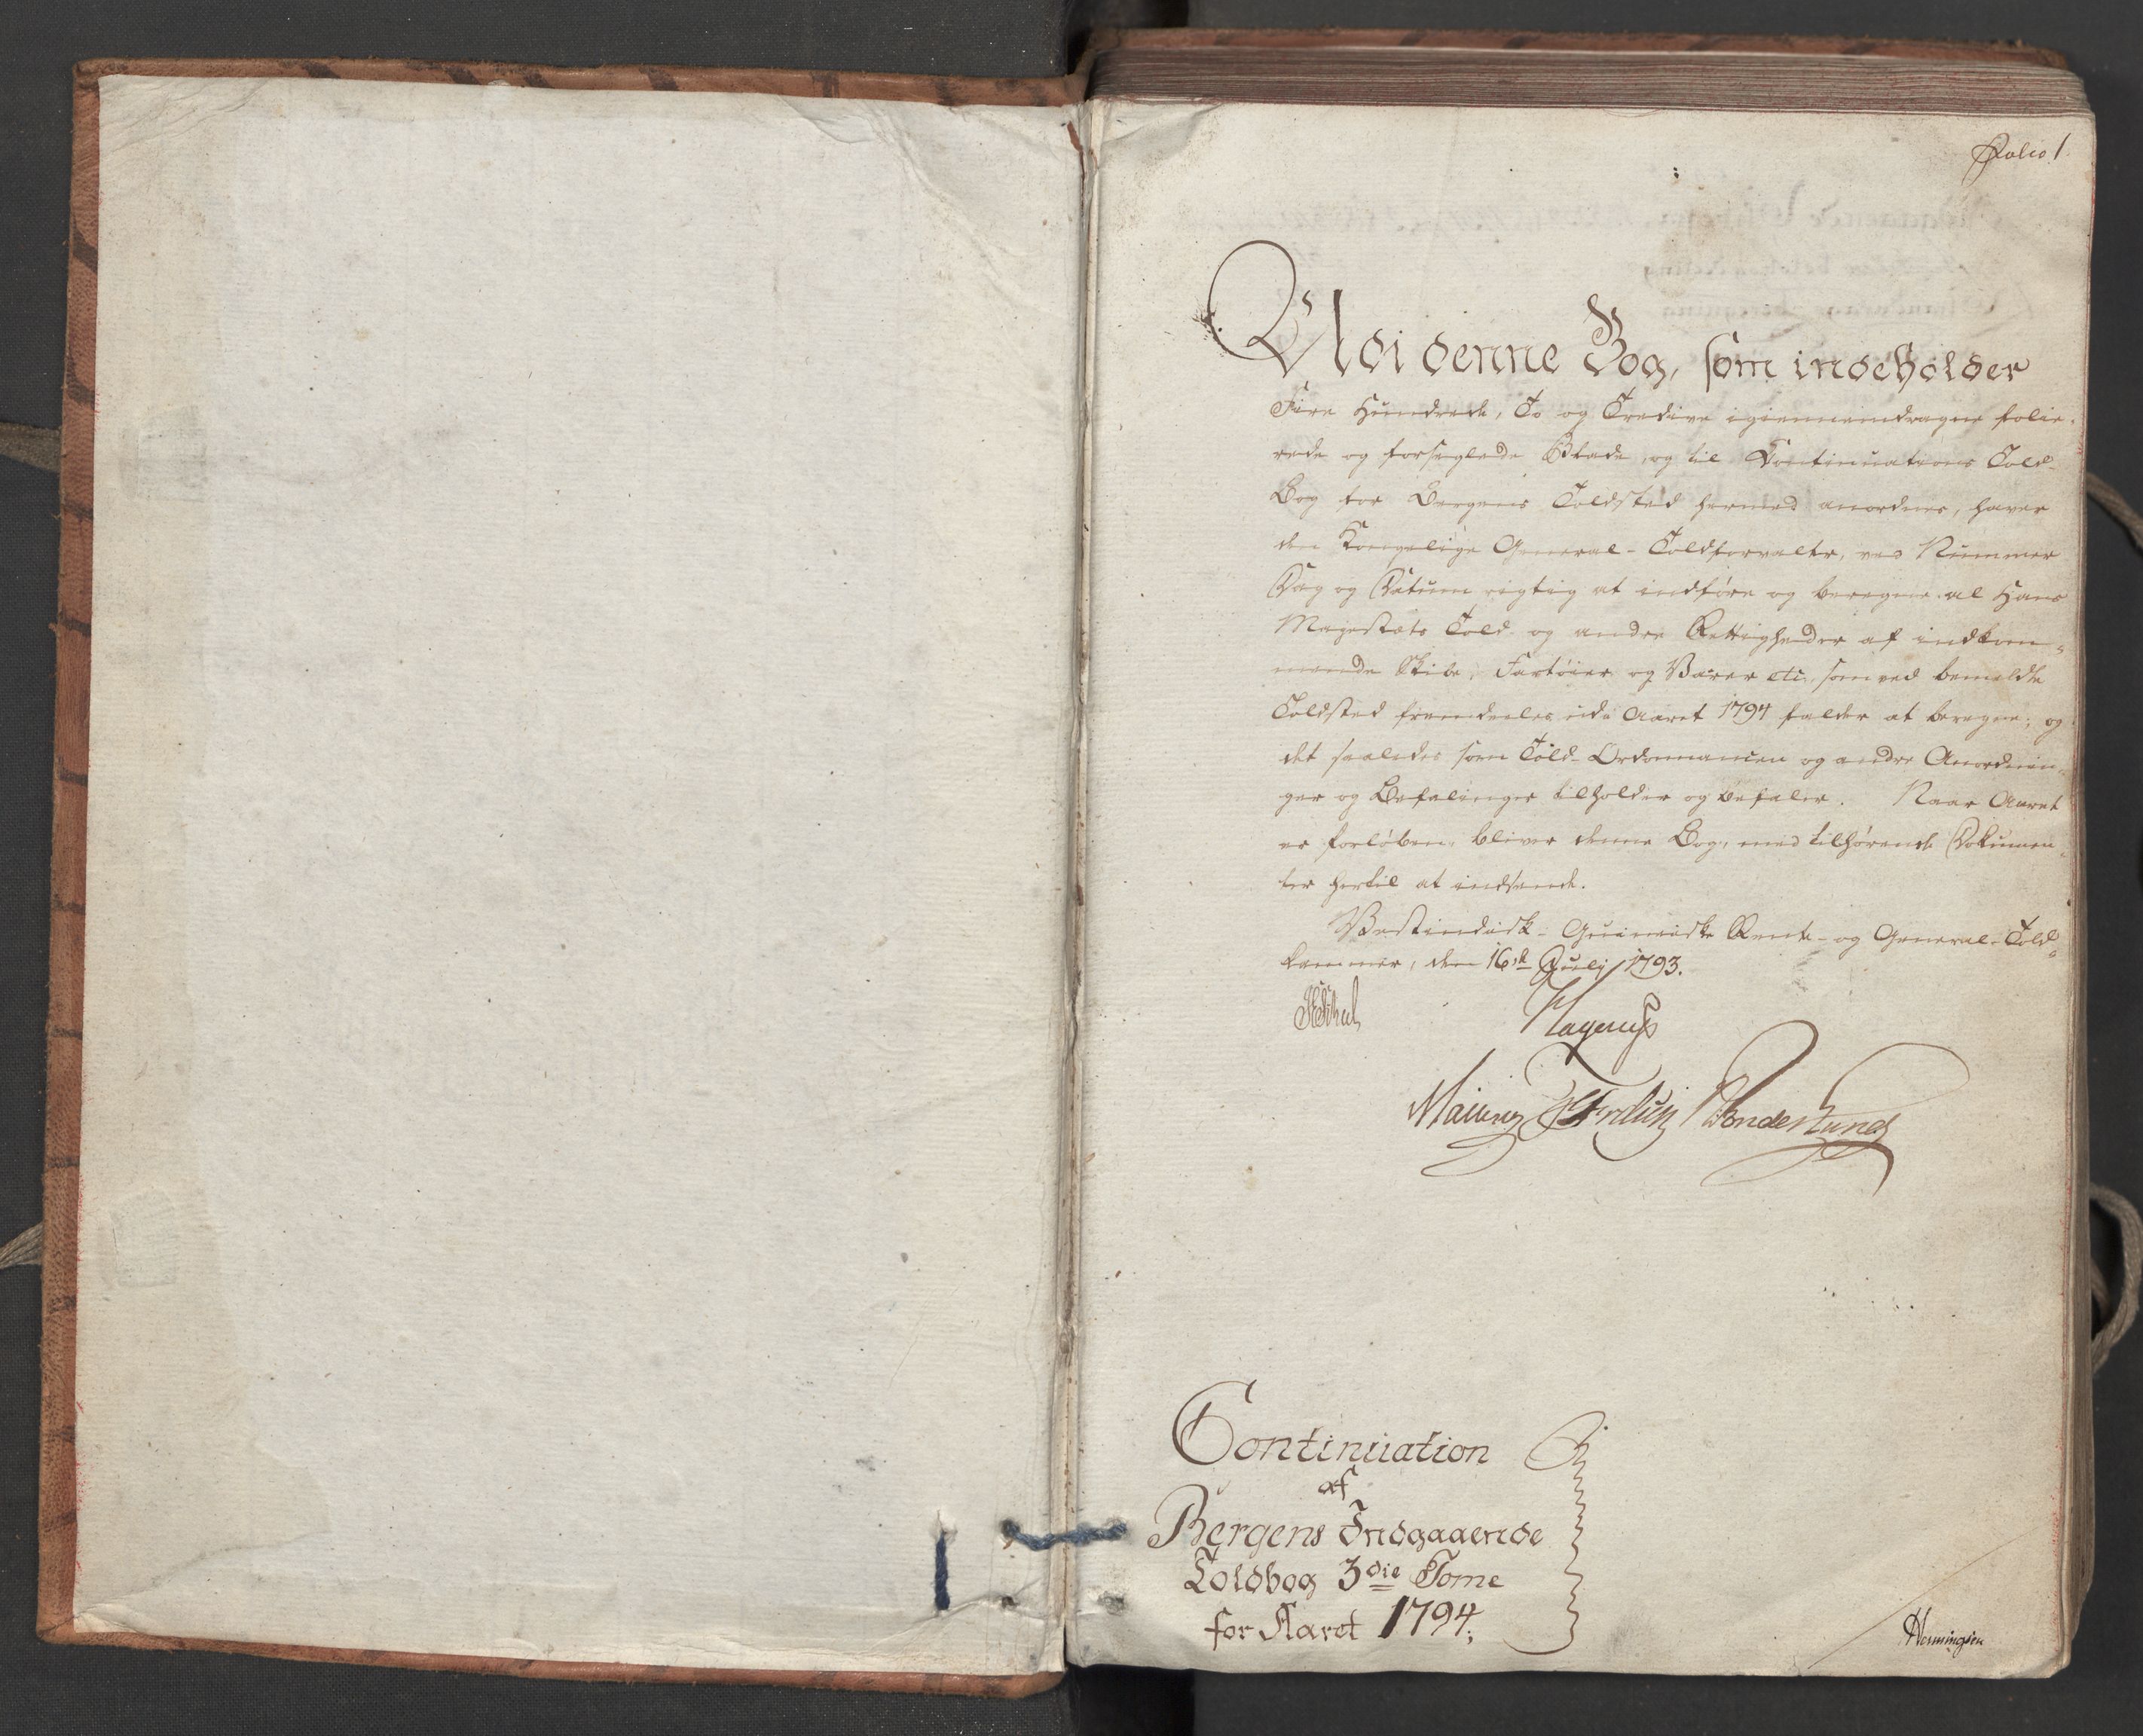 Folio 1.
Udi denne Bog, som indeholder
Fire Hundrede, To og Tredive igiennemdragne folie-
rede og forseglede Blade, og til Continuations Told-
Bog for Bergens Toldsted hermed anordnes, haver
den Kongelige General-Toldforvalter, ved Nummer
Dag og Datum rigtig at indføre og beregne al Hans
Majestæts Told og andre Rettigheder af indkom-
mende Skibe, Fartøier og Varer etc. som ved bemeldte
Toldsted fremdeeles udi Aaret 1794 falder at beregne; og
det saaledes som Told-Ordonnancen og andre Anordnin-
ger og Befalinger tilholder og befaler. Naar Aaret
er forløben, bliver denne Bog, med tilhørende Dokumen-
ter hertil at indsende.
Vestindisk-Guineiske Rente- og General-Told-
kammer, den 16de Julij 1793.
Hagerup
Continuation
af
Bergens Indgaaende
Toldbog 3die Tome
for Aaret 1794;
Henningsen